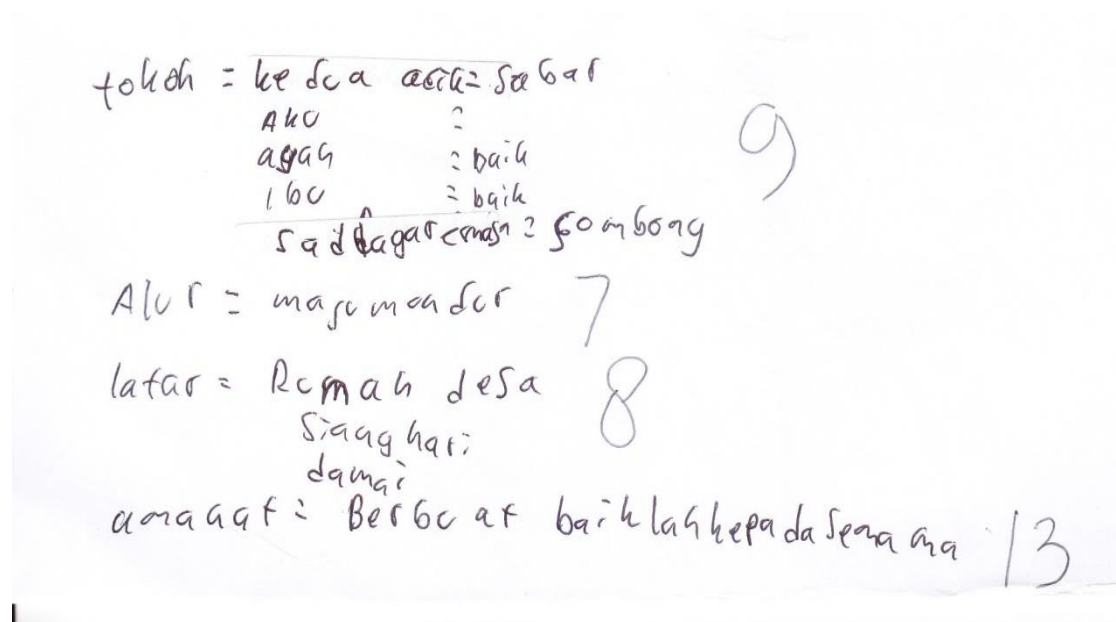 tokoh = kedua adik = sabar
Aku =
ayah = baik
Ibu = baik
saudagar emas = sombong
9
Alur = maju mundur 7
latar = Rumah desa 8
Siang hari
damai
amanat = Berbuat baiklah kepada sesama 13